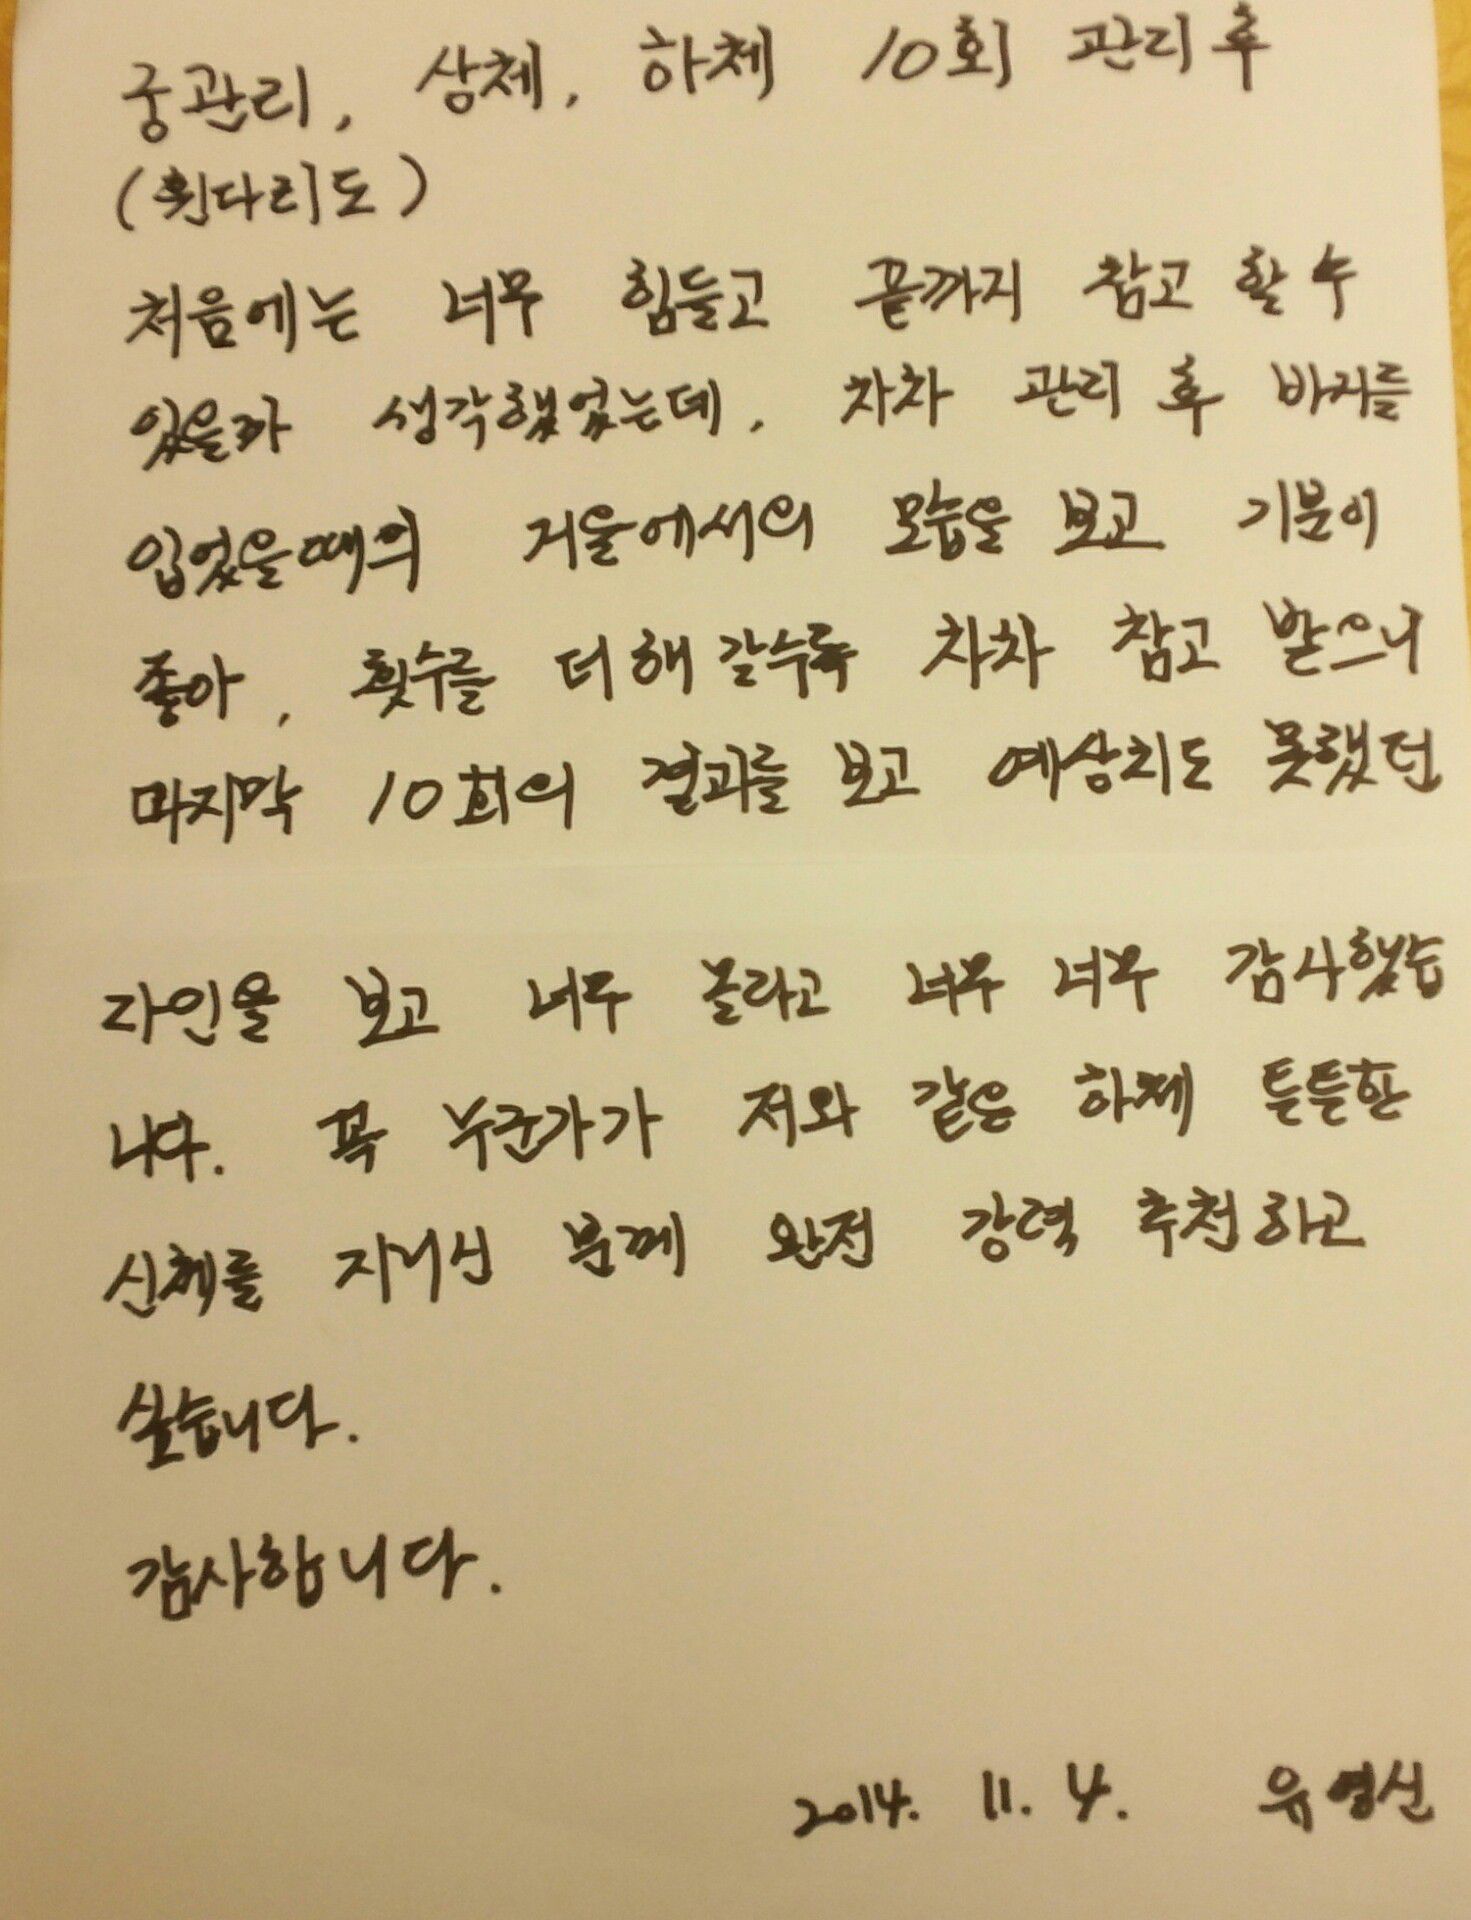 궁관리, 상체, 하체 10회 관리 후
(휜다리도)
처음에는 너무 힘들고 끝까지 참고 할 수
있을까 생각했었는데, 차차 관리 후 바지를
입었을때의 거울에서의 모습을 보고 기분이
좋아, 횟수를 더해 갈수록 차차 참고 받으니
마지막 10회의 결과를 보고 예상치도 못했던
라인을 보고 너무 놀라고 너무 너무 감사했습
니다. 꼭 누군가가 저와 같은 하체 튼튼한
신체를 지니신 분께 완전 강력 추천하고
싶습니다.
감사합니다.
2014. 11. 4. 유영신